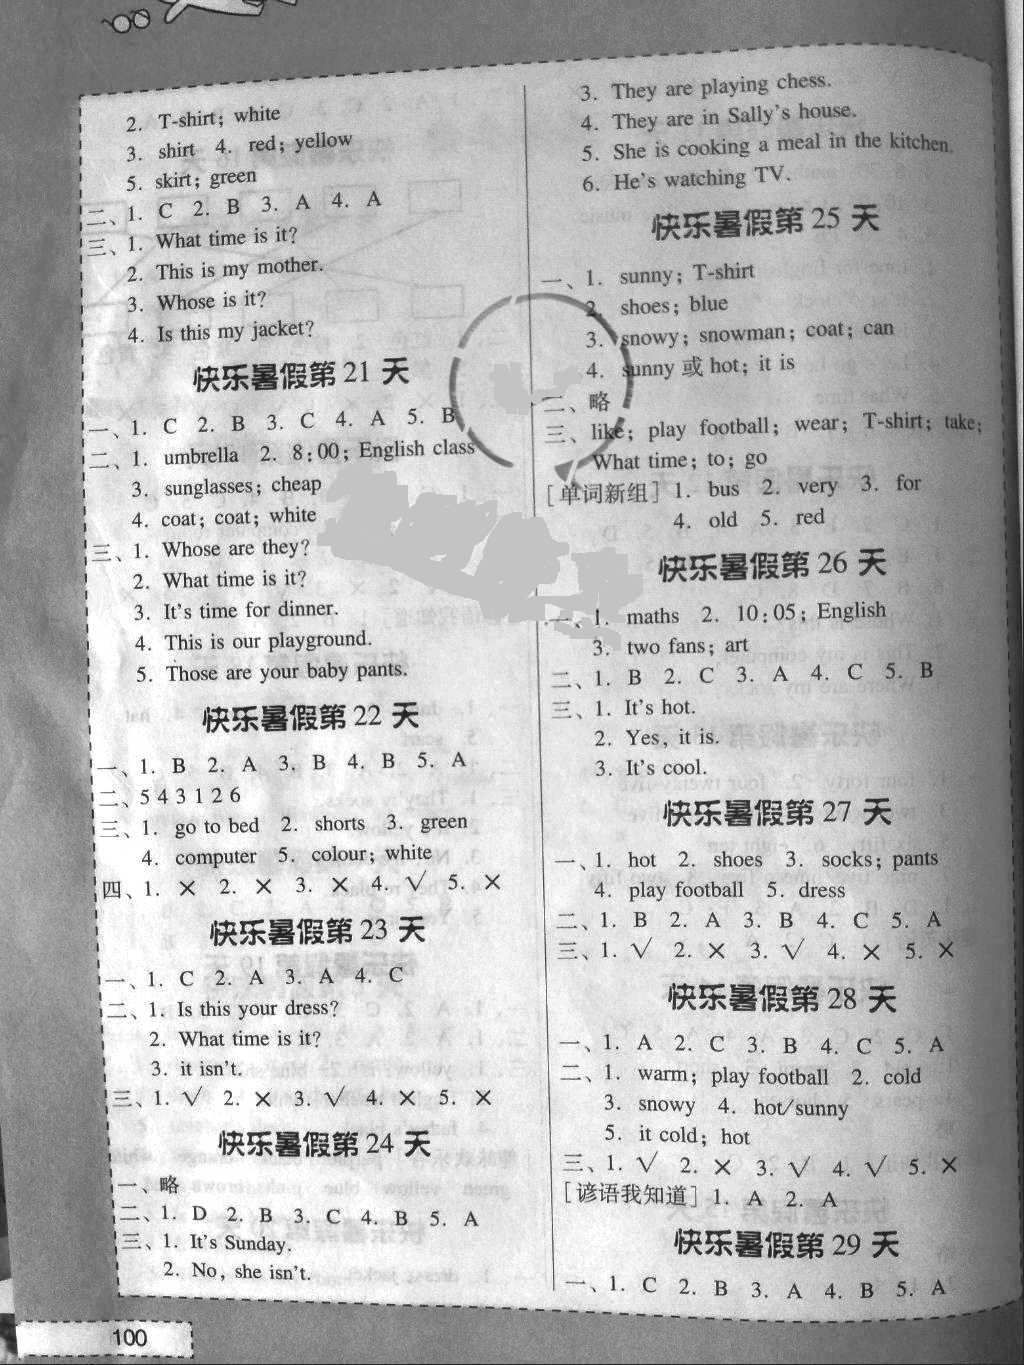 2. T-shirt; white
3. shirt 4. red; yellow
5. skirt; green
二、1. C 2. B 3. A 4. A
三、1. What time is it?
2. This is my mother.
3. Whose is it?
4. Is this my jacket?
快乐暑假第 21 天
一、1. C 2. B 3. C 4. A 5. B
二、1. umbrella 2. 8:00; English class
3. sunglasses; cheap
4. coat; coat; white
三、1. Whose are they?
2. What time is it?
3. It's time for dinner.
4. This is our playground.
5. Those are your baby pants.
快乐暑假第 22 天
一、1. B 2. A 3. B 4. B 5. A
二、5 4 3 1 2 6
三、1. go to bed 2. shorts 3. green
4. computer 5. colour; white
四、1. × 2. × 3. × 4. √ 5. ×
快乐暑假第 23 天
一、1. C 2. A 3. A 4. C
二、1. Is this your dress?
2. What time is it?
3. it isn't.
三、1. √ 2. × 3. √ 4. × 5. ×
快乐暑假第 24 天
一、略
二、1. D 2. B 3. C 4. B 5. A
三、1. It's Sunday.
2. No, she isn't.
3. They are playing chess.
4. They are in Sally's house.
5. She is cooking a meal in the kitchen.
6. He's watching TV.
快乐暑假第 25 天
一、1. sunny; T-shirt
2. shoes; blue
3. snowy; snowman; coat; can
4. sunny 或 hot; it is
二、略
三、like; play football; wear; T-shirt; take;
What time; to; go
[单词新组] 1. bus 2. very 3. for
4. old 5. red
快乐暑假第 26 天
一、1. maths 2. 10:05; English
3. two fans; art
二、1. B 2. C 3. A 4. C 5. B
三、1. It's hot.
2. Yes, it is.
3. It's cool.
快乐暑假第 27 天
一、1. hot 2. shoes 3. socks; pants
4. play football 5. dress
二、1. B 2. A 3. B 4. C 5. A
三、1. √ 2. × 3. √ 4. × 5. ×
快乐暑假第 28 天
一、1. A 2. C 3. B 4. C 5. A
二、1. warm; play football 2. cold
3. snowy 4. hot/sunny
5. it cold; hot
三、1. √ 2. × 3. √ 4. √ 5. ×
[谚语我知道] 1. A 2. A
快乐暑假第 29 天
一、1. C 2. B 3. A 4. B 5. A
100